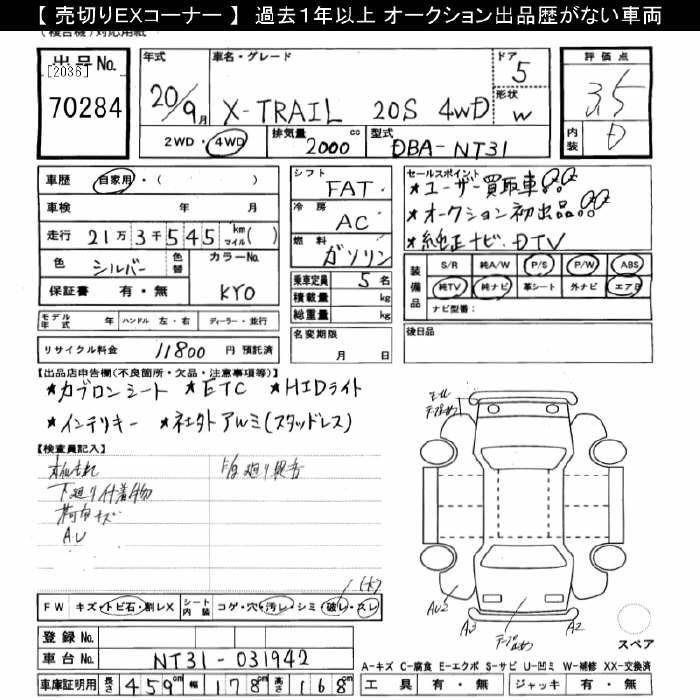 【 売切りEXコーナー 】 過去1年以上 オークション出品歴がない車両
(複合機)対応用紙
出品No.
[2036]
70284
年式
車名・グレード
ドア
5
評価点
3.5
20/9月
X-TRAIL 20S 4WD
形状
W
内装
D
2WD・4WD
排気量 2000 cc
型式 DBA-NT31
車歴 自家用・( )
車検 年 月
走行 21万3千545 km マイル( )
色 シルバー 色替
カラーNo. KY0
保証書 有・無
モデル年式 年 ハンドル 左・右 ディーラー・並行
リサイクル料金 11800 円 預託済
シフト FAT
冷房 AC
燃料 ガソリン
乗車定員 5 名
積載量 kg
総重量 kg
名変期限
月 日
セールスポイント
★ユーザー買取車
★オークション初出品
★純正ナビ・DTV
装備品
S/R 純A/W P/S P/W ABS
純TV 純ナビ 革シート 外ナビ エアB
ナビ型番:
後日品
【出品店申告欄(不良箇所・欠品・注意事項等)】
★カブロンシート ★ETC ★HIDライト
★インテリキー ★社外アルミ(スタッドレス)
【検査員記入】
下廻り付着物
FW キズ・トビ石・割レX
シート内装 コゲ・穴・汚レ・シミ・破レ・スレ
登録No.
車台No. NT31-031942
車庫証明用 長さ 459cm 幅 178cm 高さ 168cm
AU2
A3
A2
スペア
A-キズ C-腐食 E-エクボ S-サビ U-凹ミ W-補修 XX-交換済
工具 有・無 ジャッキ 有・無